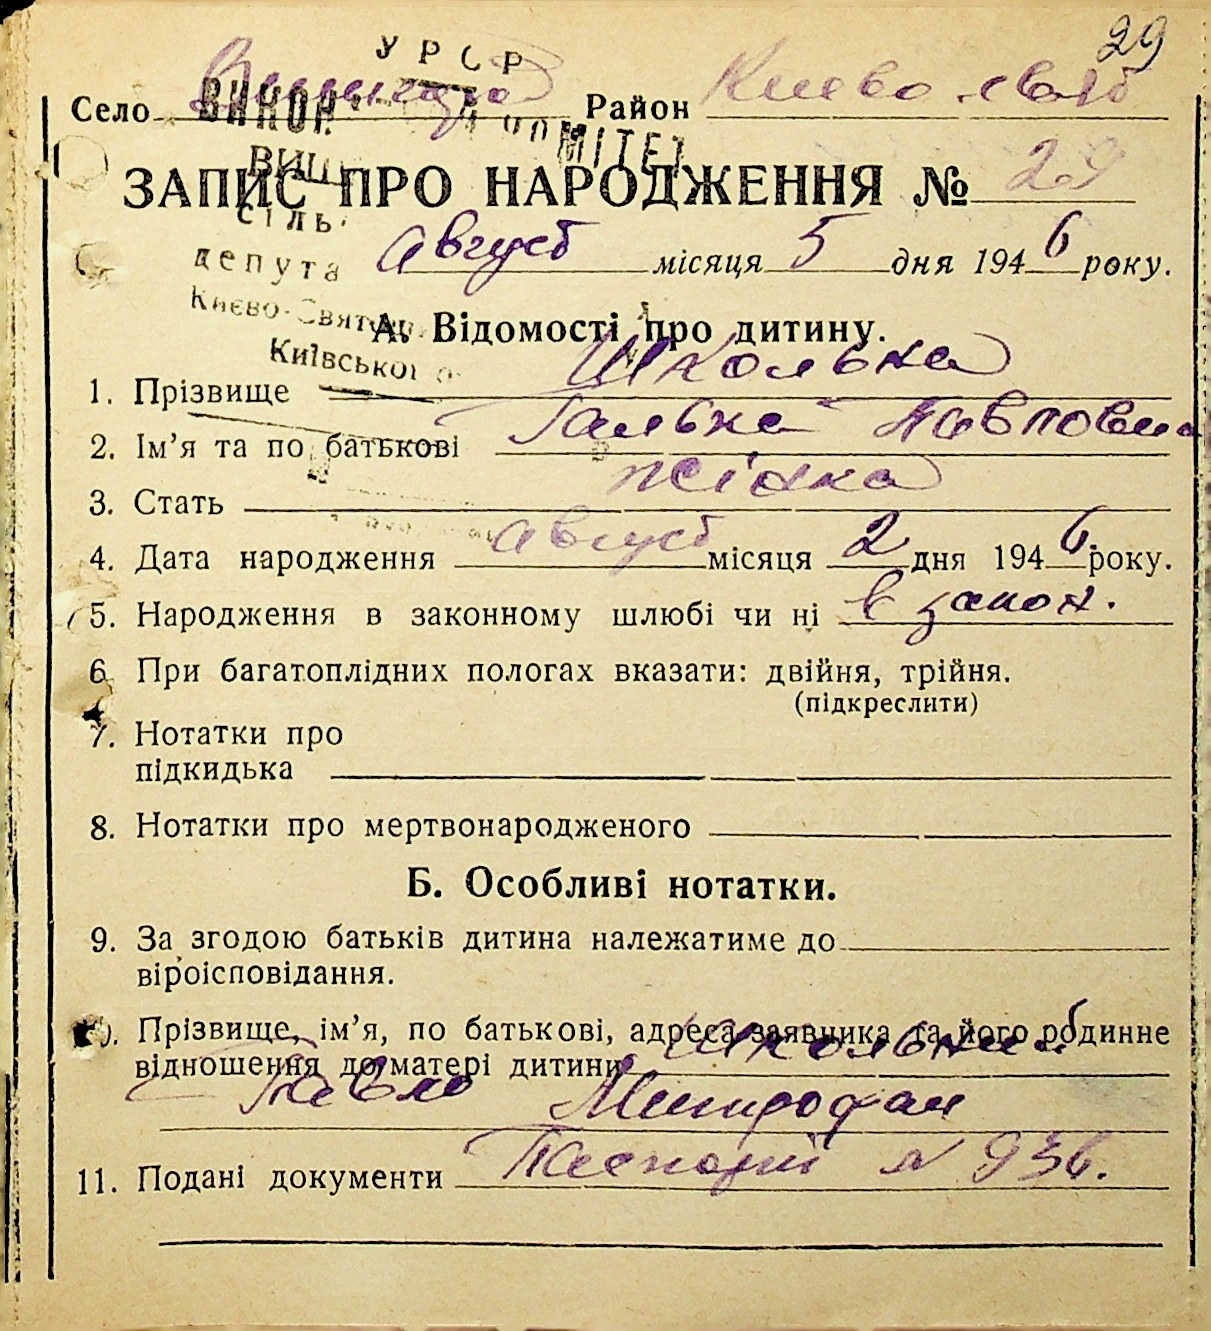 29
УРСР
Село Вишгород Район Києво Свят
ВИКОН МІТЕТ
ВИШ
ЗАПИС ПРО НАРОДЖЕННЯ № 29
СІЛЬ
депута Август місяця 5 дня 1946 року.
Києво-Святош
А. Відомості про дитину.
Київської о
1. Прізвище Школьна
2. Ім’я та по батькові Гальна Павловна
3. Стать жінка
4. Дата народження Август місяця 2 дня 1946. року.
5. Народження в законному шлюбі чи ні в закон.
6 При багатоплідних пологах вказати: двійня, трійня.
(підкреслити)
7. Нотатки про
підкидька
8. Нотатки про мертвонародженого
Б. Особливі нотатки.
9. За згодою батьків дитина належатиме до
віроісповідання.
10. Прізвище, ім’я, по батькові, адреса заявника та його родинне
відношення до матері дитини Школьний
Павло Митрофан
11. Подані документи Паспорт N 936.